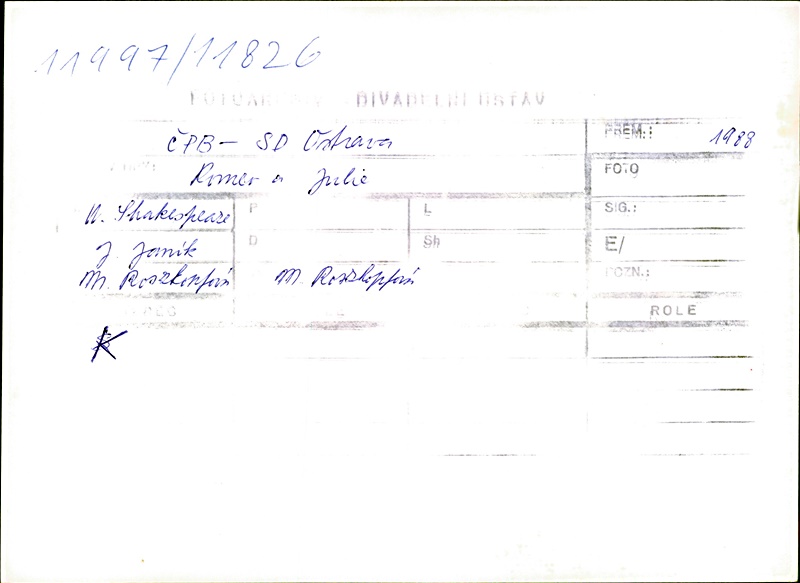 11997/11826
DIVADELNÍ ÚSTAV
ČPB - SD Ostrava
PREM.: 1988
Romeo a Julie
FOTO
W. Shakespeare P L SIG.:
J. Janík D Sh E/
M. Roszkopfová M. Roszkopfová POZN.:
ROLE
K